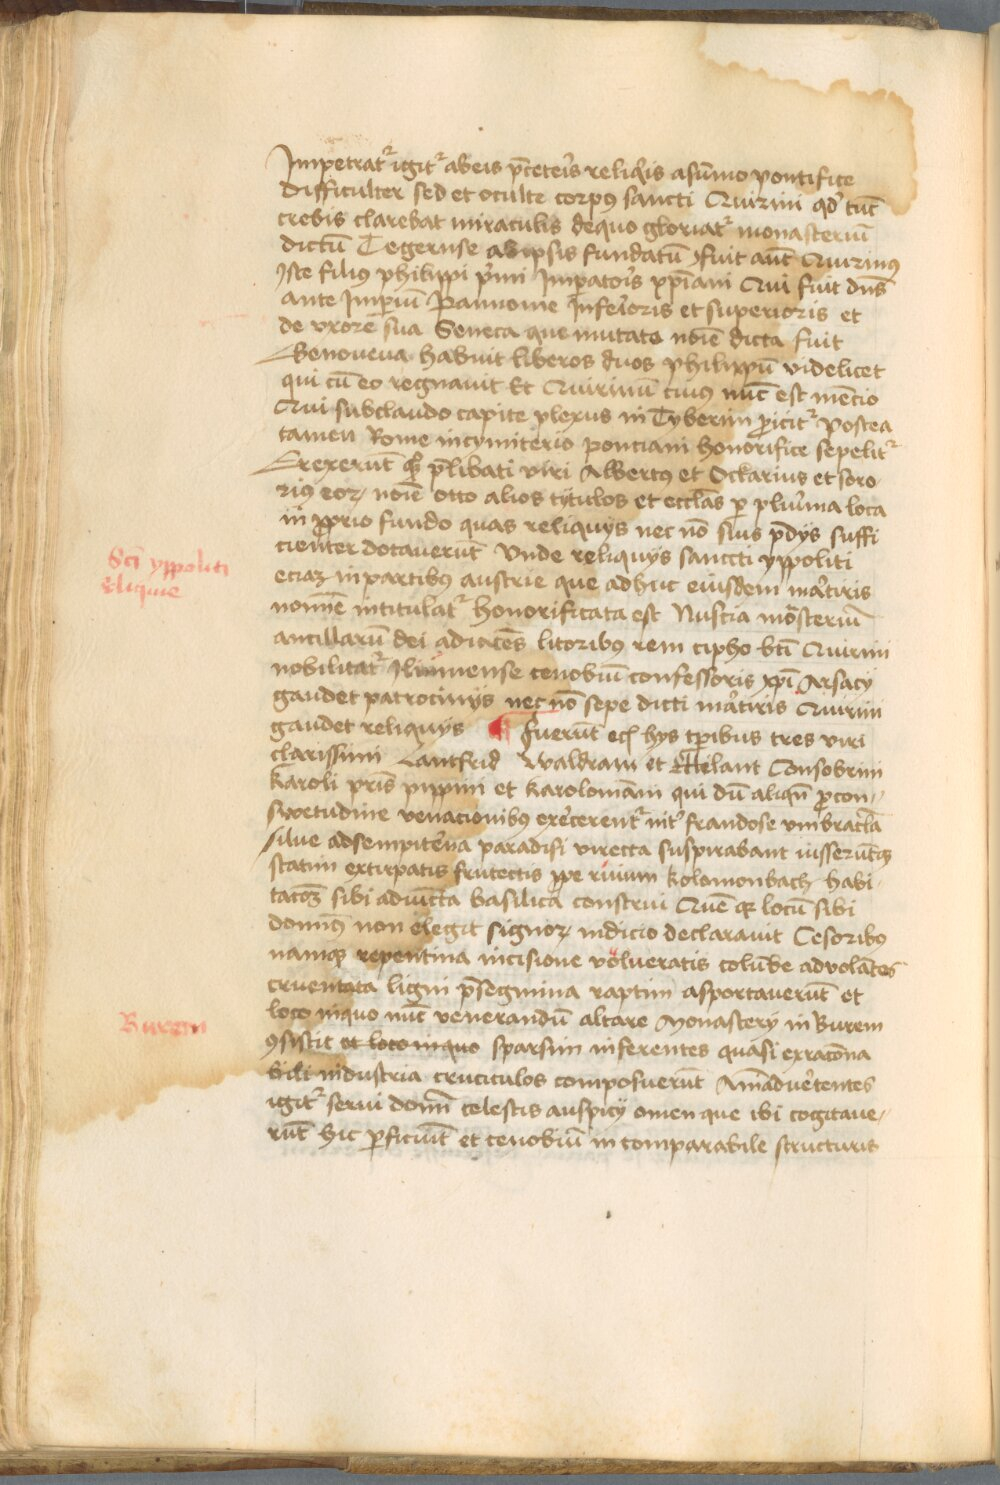 Impetratr igitr ab eis p̄ceteris reliqis a sūmo pontifice
difficulter sed et oculte corpꝯ sancti Quirini qd' tūc
crebis clarebat miraculis de quo gloriatr monasteriū
dictū Tegernse ab ipsis fundatū ꝯfuit aūt Quirinꝯ
Iste filiꝯ philippi p'mi Impator̄s xp̄iani Qui fuit dn̄s
ante Imp̄iū Pannonie Inferioris et superioris et
de vxore sua Seneca que mutato noīe dicta fuit
Genoveua habuit liberos duos philippū videlicet
qui cū eo regnauit Et Quirinū cuiꝯ nūc est mētio
Qui sub claudo capite plexus in Tyberim ꝓicitr Postea
tamen Rome in cymiterio ponciani honorifice sepelitr
Erexerūt qꝫ p̄libati viri Albertꝯ et Ockarius et soro
riꝯ eoꝝ noīe Otto alios tytulos et ecclās p pluīma loca
in ꝓprio fundo quas reliquys nec nō suis p̄dys suffi
cienter dotauerūt Vnde reliquys sanccti yppoliti
eciaꝫ in partibꝯ austrie que adhuc eiusdem mārtiris
nomīe intitulatr honorificata est Nuscia mōsteriū
ancillarū dei adiacēs litoribus rem cipho bt̄i Quirini
nobilitatr Ilmimense cenobiū confessoris xp̄i Arsacy
gaudet patrocinys nec nō sepe dicti mārtiris Quirini
gaudet reliquys fuerūt eciā hys tp̄ibus tres viri
clarissimi Lantfrid Waldram et Elilant Consobrini
Karoli pr̄is pippini et karolomāni qui dū aliqn̄ ꝓ con
swetudine venacionibꝯ exercerentr int' frandose vmbracl̄a
silue ad sempiterna paradisi virecta suspirabant iusserūtqꝫ
statim extirpatis frutectis ꝓpe riuum kolomonbach habi
tacōꝫ sibi adiuncta basilica construi Quē qꝫ locū sibi
domīꝯ non elegit signoꝝ indicio declarauit Cesoribꝯ
namqꝫ repentina incisione vulneratis colūbe advolātes
cruentata ligni p̄segmina raptim asportauerūt et
loco in quo nūc venerandū altare Monastery in Burem
ꝯsistit et loco in quo sparsim inferentes quasi ex racōna
bili industria cruciculos composuerūt Amāduertentes
igitr serui domī celestis auspicy omen que ibi cogitaue
rūt hic ꝑficiūt et cenobiū in comparabile structuris
Sc̄i yppoliti
reliquie
Burem